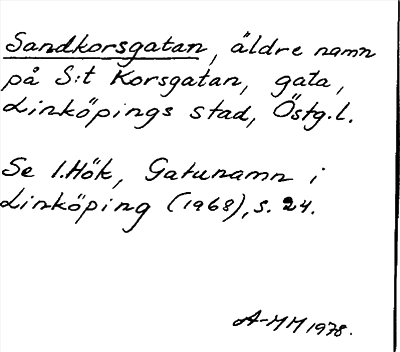 Sandkorsgatan, äldre namn
på S:t Korsgatan, gata,
Linköpings stad, Östg.l.
Se I.Hök, Gatunamn i
Linköping (1968), s. 24.
A-MM 1978.